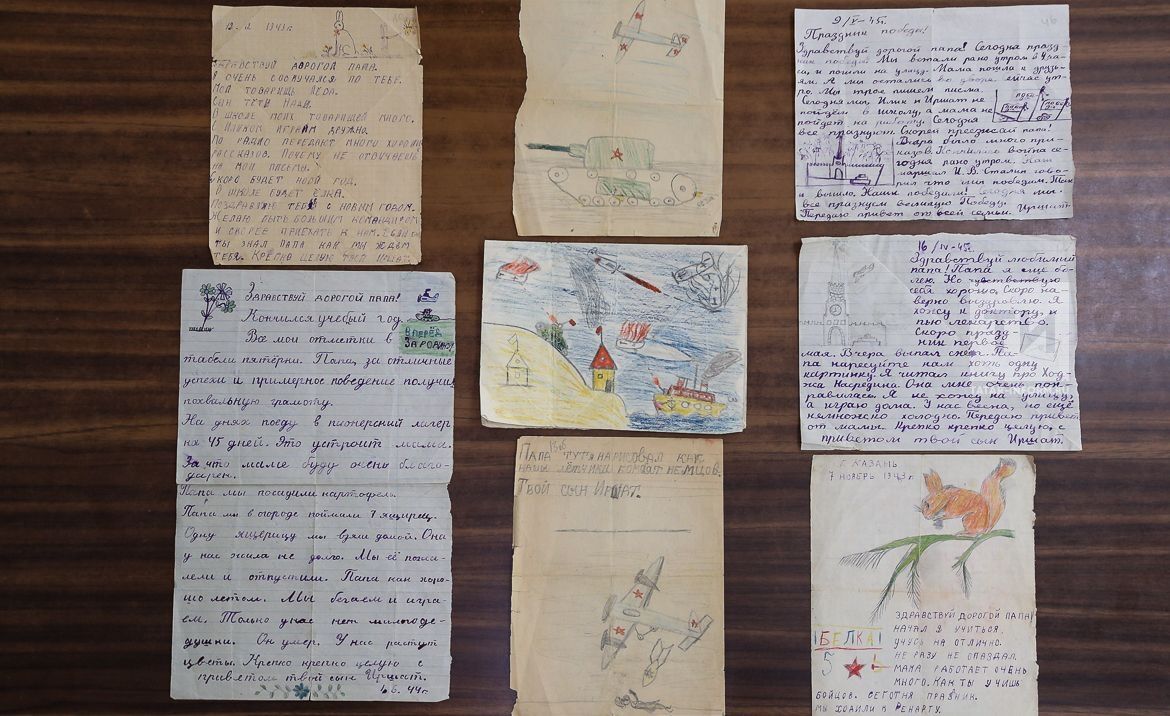 12-12 1943 г
ЗДРАВСТВУЙ ДОРОГОЙ ПАПА.
Я ОЧЕНЬ СОСКУЧАЛСЯ ПО ТЕБЕ.
МОЙ ТОВАРИЩЬ ЛЁВА.
СЫН ТЁТИ НАДИ.
В ШКОЛЕ МОИХ ТОВАРИЩЕЙ МНОГО.
С ИЛИКОМ ИГРАЙМ ДРУЖНО.
ПО РАДИО ПЕРЕДАЮТ МНОГО ХОРОШИХ
РАССКАЗОВ. ПОЧЕМУ НЕ ОТВУЧАЕШЬ
НА МОИ ПИСЬМЫ.
СКОРО БУДЕТ НОВЙ ГОД.
В ШКОЛЕ БУДЕТ ЁЛКА.
ПОЗДРАВЛЯЮ ТЕБЯ С НОВЫМ ГОДОМ.
ЖЕЛАЮ БЫТЬ БОЛЬШИМ КОМАНДИРОМ
И СКОРЕЕ ПРИЕХАТЬ К НАМ.
ТЫ ЗНАЛ ПАПА КАК МЫ ЖДЁМ
ТЕБЯ. КРЕПКО ЦЕЛУЮ ТВОЙ ИРШАТ.
Здравствуй дорогой папа!
Кончился учебый год.
Все мои отметки в
табели пятёрки. Папа, за отличные
успехи и примерное поведение получил
похвальную грамоту.
На днях поеду в пионерский лагер
на 45 дней. Это устроит мама.
За что маме буду очень благо-
дарен.
Папа мы посадили картофель.
Папа мы в огороде поймали 7 ящериц.
Одну ящерицу мы взяли домой. Она
у нас жила не долго. Мы её пожа-
лели и отпустили. Папа как хоро-
шо летом. Мы бегаем и игра-
ем. Только у нас нет милого де-
душки. Он умер. У нас растут
цветы. Крепко крепко целую с
приветом твой сын Иршат.
6. 44 г.
Вперёд
За родину!
ПАПА ТУТ Я НАРИСОВАЛ КАК
НАШЫ ЛЁТЧИКИ БОМБЯТ НЕМЦОВ.
ТВОЙ СЫН ИРШАТ.
9/V-45 г.
Праздник победы!
Здравствуй дорогой папа! Сегодня празд-
ник победы. Мы встали рано утром в 4 ча-
са, и пошли на улицу. Мама пошла к друзь-
ям. А мы остались во дворе. Сейчас ут-
ро. Мы трое пишем писма.
Сегодня мы, Илик и Иршат не
пойдём в школу, а мама не
пойдет на работу. Сегодня
все празнуют. Скорей преежай папа!
Вчера было много при-
казов. Кончилась война се-
годня рано утром. Наш
маршал И.В. Сталин гово-
рил что мы победим. Так
и вышло. Наши победили! Сегодня мы
все празнуем великую Победу.
Передаю привет от всей семьи. Иршат.
46
16/IV-45 г.
Здравствуй любимый
папа! Папа я ещё бо-
лею. Но чувствевую
себя хорошо. Скоро на-
верно выздравлю. Я
хожу к доктору, и
пью лекарство.
Скоро празд-
ник первое
мая. Вчера выпал снег. Па-
па наресуйте нам хоть одну
картинку. Я читал книгу про Ход-
жа Насредина. Она мне очень пон-
равилась. Я не хожу на улицу,
а играю дома. У нас весна, но ещё
немножко холодно. Передаю привет
от мамы. Крепко крепко целую, с
приветом твой сын Иршат.
Г. КАЗАНЬ
7 НОЯБРЬ 1943 г
ЗДРАВСТВУЙ ДОРОГОЙ ПАПА!
НАЧАЛ Я УЧИТЬСЯ.
УЧУСЬ НА ОТЛИЧНО.
НЕ РАЗУ НЕ ОПАЗДАЛ.
МАМА РАБОТАЕТ ОЧЕНЬ
МНОГО. КАК ТЫ УЧИШЬ
БОЙЦОВ. СЕГОТНЯ ПРАЗНИК.
МЫ ХОДИЛИ К РЕНАРТУ.
БЕЛКА!
5